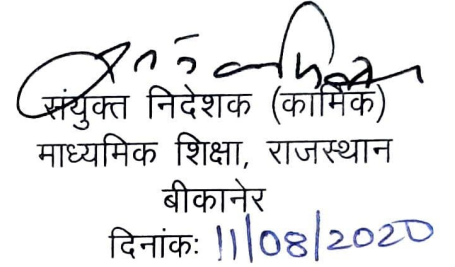 संयुक्त निदेशक (कार्मिक)
माध्यमिक शिक्षा, राजस्थान
बीकानेर
दिनांकः 11/08/2020